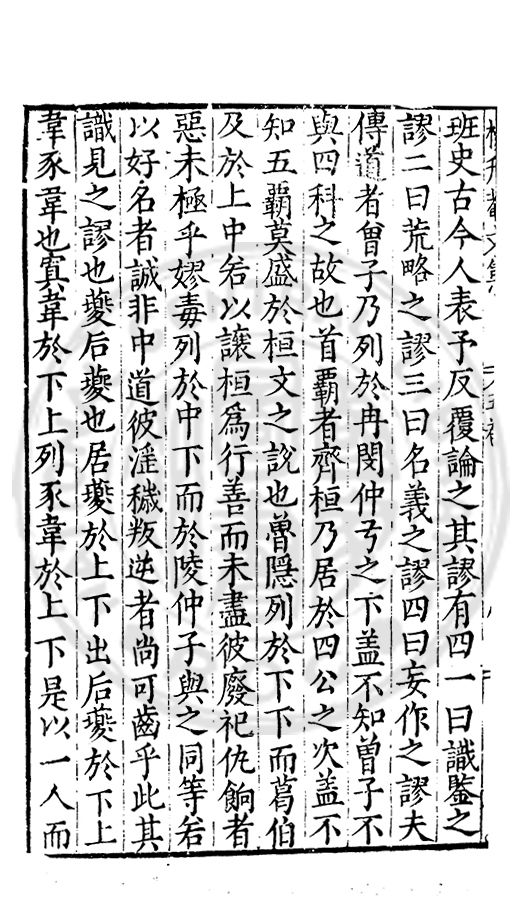 班史古今人表予反覆論之其謬有四一曰識鑒之
謬二曰荒略之謬三曰名義之謬四曰妄作之謬夫
傳道者曾子乃列於冉閔仲弓之下盖不知曾子不
與四科之故也首霸者齊桓乃居於四公之次盖不
知五霸莫盛於桓文之說也魯隱列於下下而葛伯
及於上中若以讓桓爲行善而未盡彼廢祀仇餉者
惡未極乎嫪毒列於中下而於陵仲子與之同等若
以好名者誠非中道彼滛穢叛逆者尚可齒乎此其
識見之謬也夔后夔也居夔於上下出后夔於下上
韋豕韋也寘韋於下上列豕韋於上下是以一人而